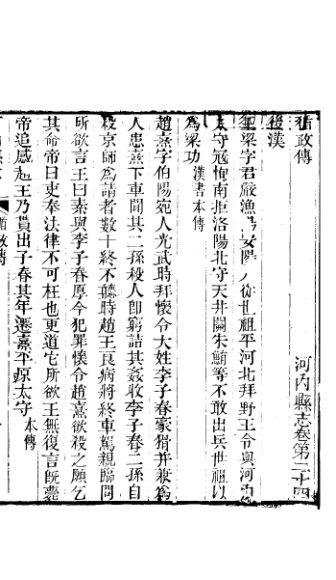 循政傳　河內縣志卷第二十四
後漢
王梁字君嚴漁陽安陽人從世祖平河北拜野王令與河內
太守寇恂南拒洛陽北守天井關朱鮪等不敢出兵世祖以
為梁功漢書本傳
趙熹字伯陽宛人光武時拜懷令大姓李子春豪猾并兼為
人患熹下車聞其二孫殺人即窮詰其姦收李子春二孫自
殺京師為請者數十終不聽時趙王良病將終車駕親臨問
所欲言王曰素與李子春厚今犯罪懷令趙熹欲殺之願乞
其命帝曰吏奉法律不可枉也更道它所欲王無復言既薨
帝追感趙王乃貰出子春其年遷熹平原太守本傳